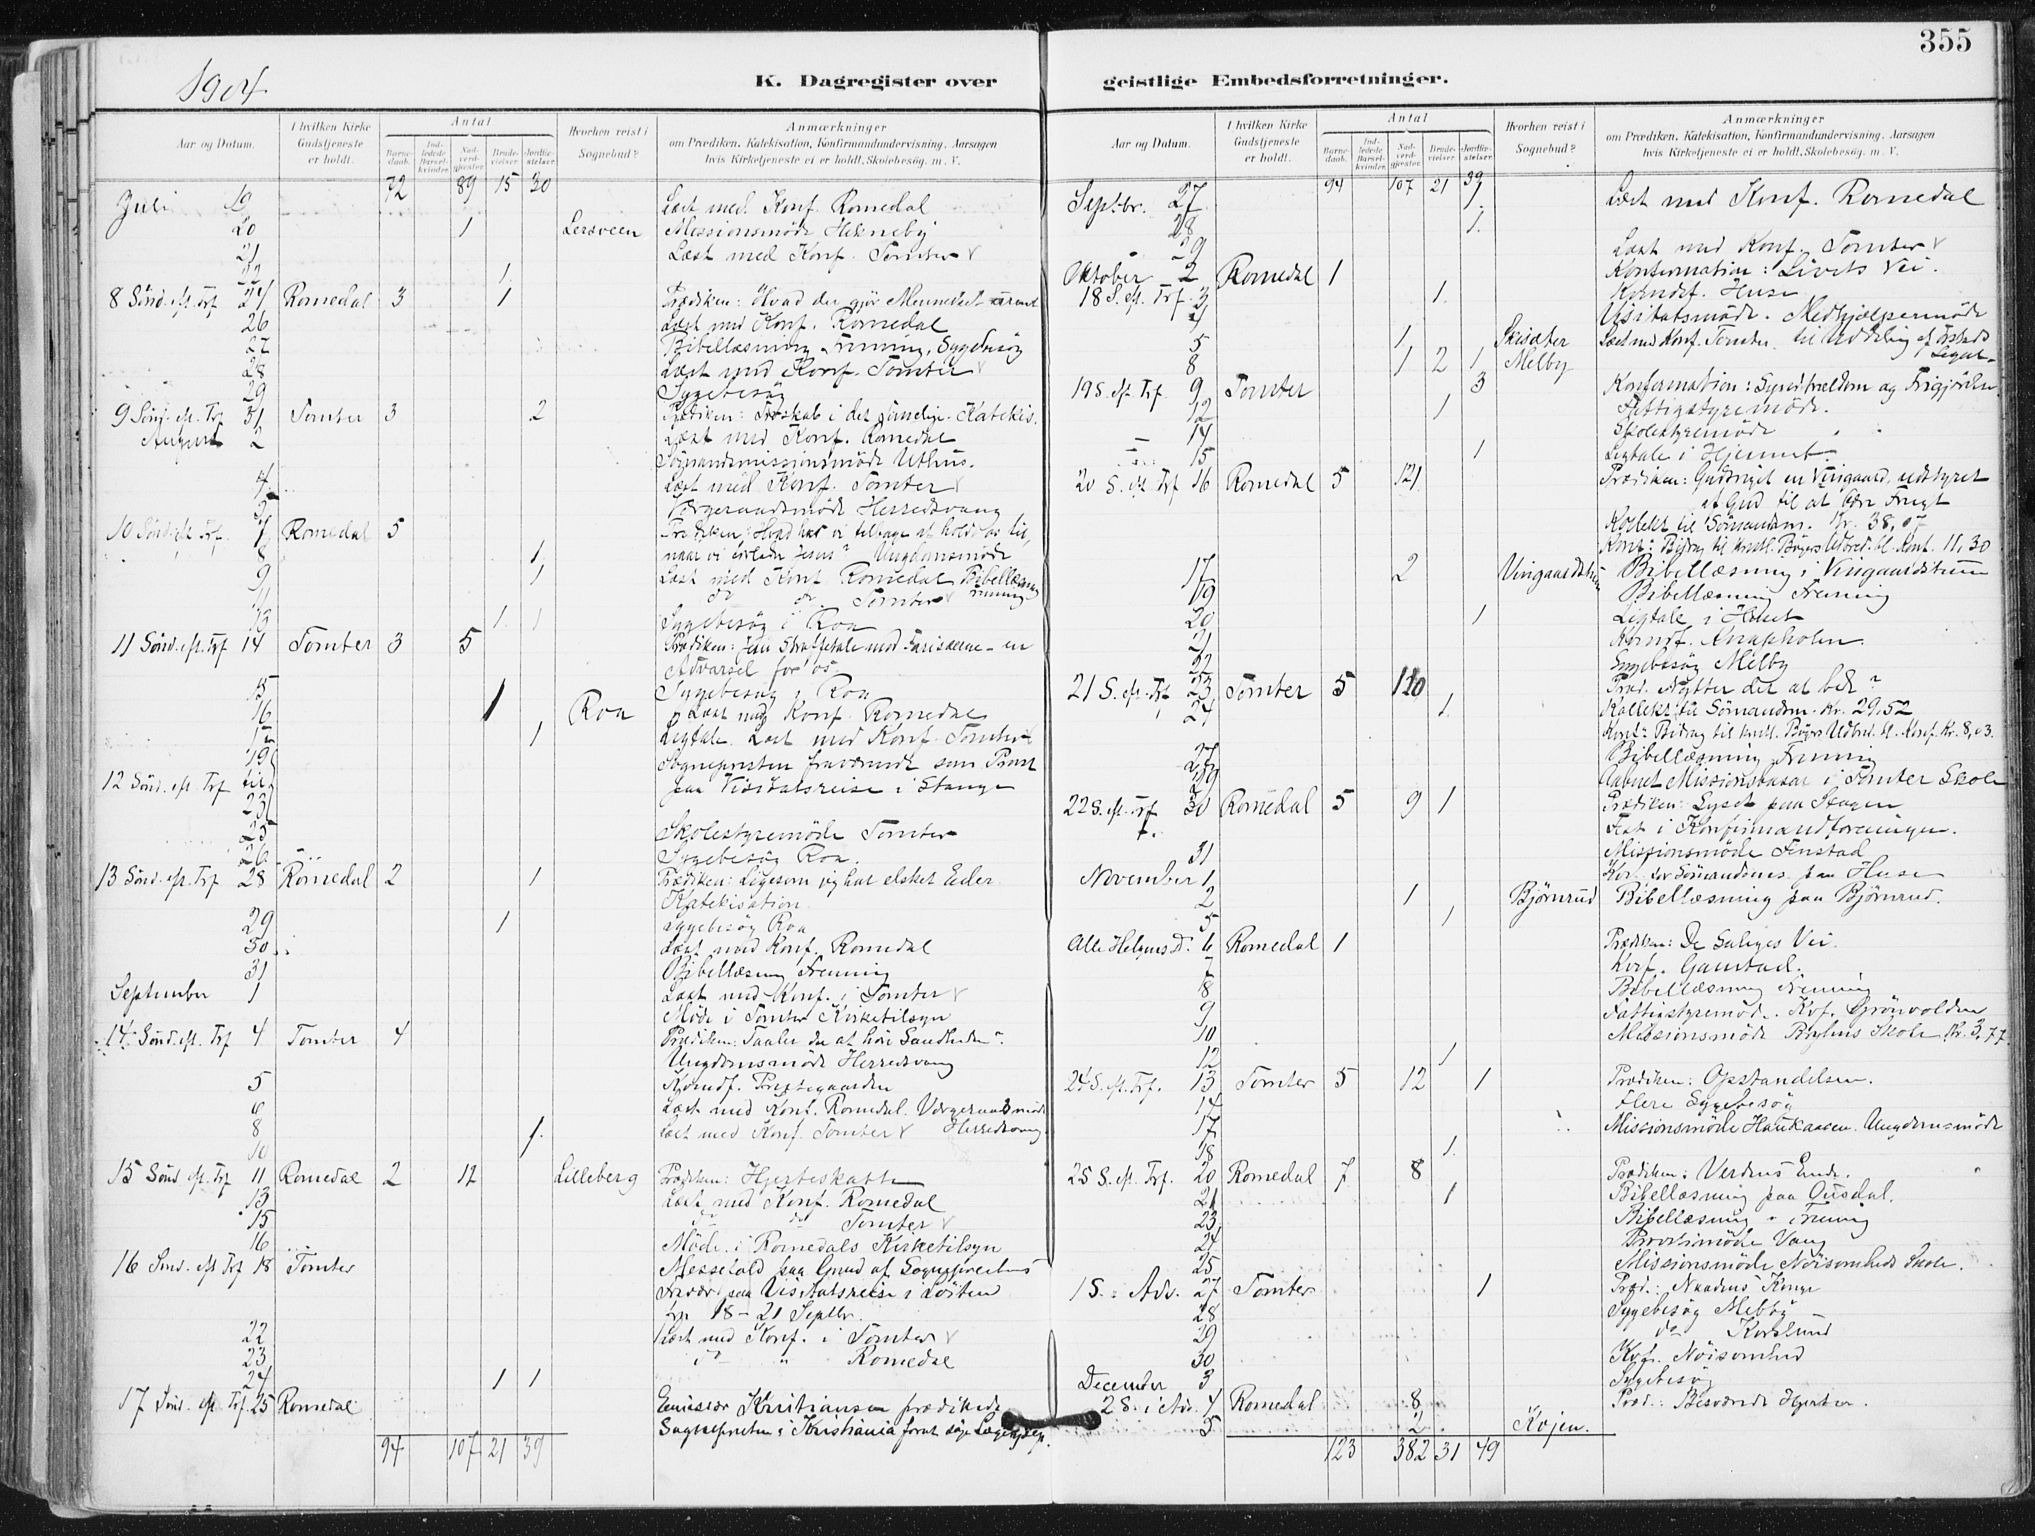 355
1904
K. Dagregister over geistlige Embedsforretninger.
Aar og Datum.
I hvilken Kirke Gudstjeneste er holdt.
Antal
Barnedaab.
Indledede Barselkvinder.
Nadverdgjester.
Brudevielser.
Jordfæstelser.
Hvorhen reist i Sognebud?
Anmærkninger
om Prædiken, Katekisation, Konfirmandundervisning, Aarsagen
hvis Kirketjeneste ei er holdt, Skolebesøg m. V.
72 89 15 30
Juli 19 Læst med Konf. Romedal
20 1 Lersveen Missionsmøde
21 Læst med Konf. Tomter
22 1
8 Sønd. ef. Trf 24 Romedal 3 1 Prædiken: Hvad der gjør Mennesket
26 Læst med Konf. Romedal
27 Bibellæsning Frening, Sygebesøg
28 Læst med Konf. Tomter
29 Sygebesøg
9 Sønd. ef. Trf 31 Tomter 3 2 Prædiken: Troskab i det timelige. Katekis.
August 2 Læst med Konf. Romedal
Sømandsmissionsmøde Uthus.
4 Læst med Konf. Tomter
5 Værgeraadsmøde Herredsvang
10 Sønd. ef. Trf. 7 Romedal 5 Prædiken: Hvad har vi tilbage at holde os til,
8 1 naar vi Jesus? Ungdomsmøde
9 1 Læst med Konf. Romedal Bibellæsning
11 do do Tomter Frening
13 1 1 Sygebesøg i Roa
11 Sønd. ef. Trf 14 Tomter 3 5 Prædiken: Jesu Straffetale mod Farisæerne - en
Advarsel for os
15 Sygebesøg i Roa
16 1 Roa Læst med Konf. Romedal
17 1 Ligtale. Læst med Konf. Tomter
19 Sognepresten fraværende som Provst
12 Sønd. ef. Trf til paa Visitatsreise i Stange
23
25 Skolestyremøde Tomter
26 Sygebesøg Roa.
13 Sønd. ef. Trf 28 Romedal 2 1 Prædiken: Ligesom jeg har elsket Eder.
Katekisation
29 1 Sygebesøg Roa
30 Læst med Konf. Romedal
31 Bibellæsning Frenning
September 1 Læst med Konf. i Tomter
Møde i Tomter Kirketilsyn
14 Sønd. ef. Trf 4 Tomter 4 Prædiken: Taaler du at høre Sandheden?
Ungdomsmøde Herredsvang
5 Kvindf. Prestegaarden
6 Læst med Konf. Romedal. Værgeraadsmøde
8 1. Læst med Konf. Tomter Herredsvang
10
15 Sønd ef. Trf 11 Romedal 2 12 Lilleberg Prædiken: Hjerteskatte
13 Læst med Konf. Romedal
15 do do Tomter
16 Møde i Romedals Kirketilsyn
16 Sønd. ef. Trf 18 Tomter Messefald paa Grund af Sogneprestens
Fravær paa Visitatsreise i Løiten
fra 18 - 21 Septbr.
22 Læst med Konf. i Tomter
23 do " Romedal
24 1 1
17 Sønd. ef. Trf. 25 Romedal Emissær Kristiansen prædikede
Sognepresten i Kristiania
94 107 21 39
Aar og Datum.
I hvilken Kirke Gudstjeneste er holdt.
Antal
Barnedaab.
Indledede Barselkvinder.
Nadverdgjester.
Brudevielser.
Jordfæstelser.
Hvorhen reist i Sognebud?
Anmærkninger
om Prædiken, Katekisation, Konfirmandundervisning, Aarsagen
hvis Kirketjeneste ei er holdt, Skolebesøg m. V.
94 107 21 39
Septbr. 27 1. Læst med Konf. Romedal
28 1.
29 Læst med Konf. Tomter
Oktober 2 Romedal 1 Konfirmation: Livets Vei.
18 S. ef. Trf. 3 1. Kvindef. Huse
4 Visitatsmøde. Medhjælpermøde
5 1 Skisæter Læst med Konf. Tomter til Uddeling af
8 1 2 1 Melby Legat
19 S. ef. Trf. 9 Tomter 3 Konfirmation: Syndstrældom og Frigjørelse
12 1 Fattigstyremøde.
14 Skolestyremøde
15 1 Ligtale i Hjemmet
20 S. ef. Trf 16 Romedal 5 121 Prædiken: Gudsriget en Vingaard, udstyret
af Gud til at bære Frugt
Kollekt til Sømandsm. Kr. 38,07
Konf: Bidrag til kristl. Bøgers Udbred. bl. Konf. 11,30
17 2 Vingaardstuen Bibellæsning i Vingaardstuen
19 Bibellæsning Frening
20 1 Ligtale i Huset
21 Kvindf. Knapholen.
22 Sygebesøg Melby
21 S. ef. Trf. 23 Tomter 5 110 Præd. Nytter det at bede?
24 1. Kollekt til Sømandsm. Kr. 29,52
Konf: Bidrag til kristl. Bøgers Udbred. bl. Konf. Kr. 8,03.
27 Bibellæsning Frening
29 Aabnet Missionsbasar i Tomter Skole
22 S. ef. Trf 30 Romedal 5 9 1 Prædiken: Lyset paa Stagen
Fest i Konfirmandforeningen.
31 Missionsmøde Finstad
November 1 Kvf. for Sømandsmis. paa Huse
2 1 Bjørnrud Bibellæsning paa Bjørnrud.
5 1
Alle Helgens D. 6 Romedal 1 Prædiken: De Saliges Vei.
7 Kvf. Gaustad.
8 Bibellæsning Frenning
9 Fattigstyremøde. Kvf. Grönvolden
10 Missionsmøde Ryhus Skole Kr. 3,77
12 1
24 S. ef. Trf. 13 Tomter 5 12 1 Prædiken: Opstandelsen.
14 Flere Sygebesøg
17 Missionsmøde Haukaasen. Ungdomsmøde
18 1.
25 S. ef. Trf. 20 Romedal 7 8 Prædiken: Verdens Ende.
21 1 Bibellæsning paa Ousdal.
23 Bibellæsning Frening
24 Provstimøde Vang
25 Missionsmøde Nöisomheds Skole.
1 S. i Adv. 27 Tomter 1 Præd.: Naadens Konge
28 Sygebesøg Melby
29 do Korslund
30 Kvf. Nöisomhed
December 3 Sygebesøg
2 S. i Adv. 4 Romedal 8 Præd.: Besværede Hjerter.
5 2 Kojen.
123 382 31 49